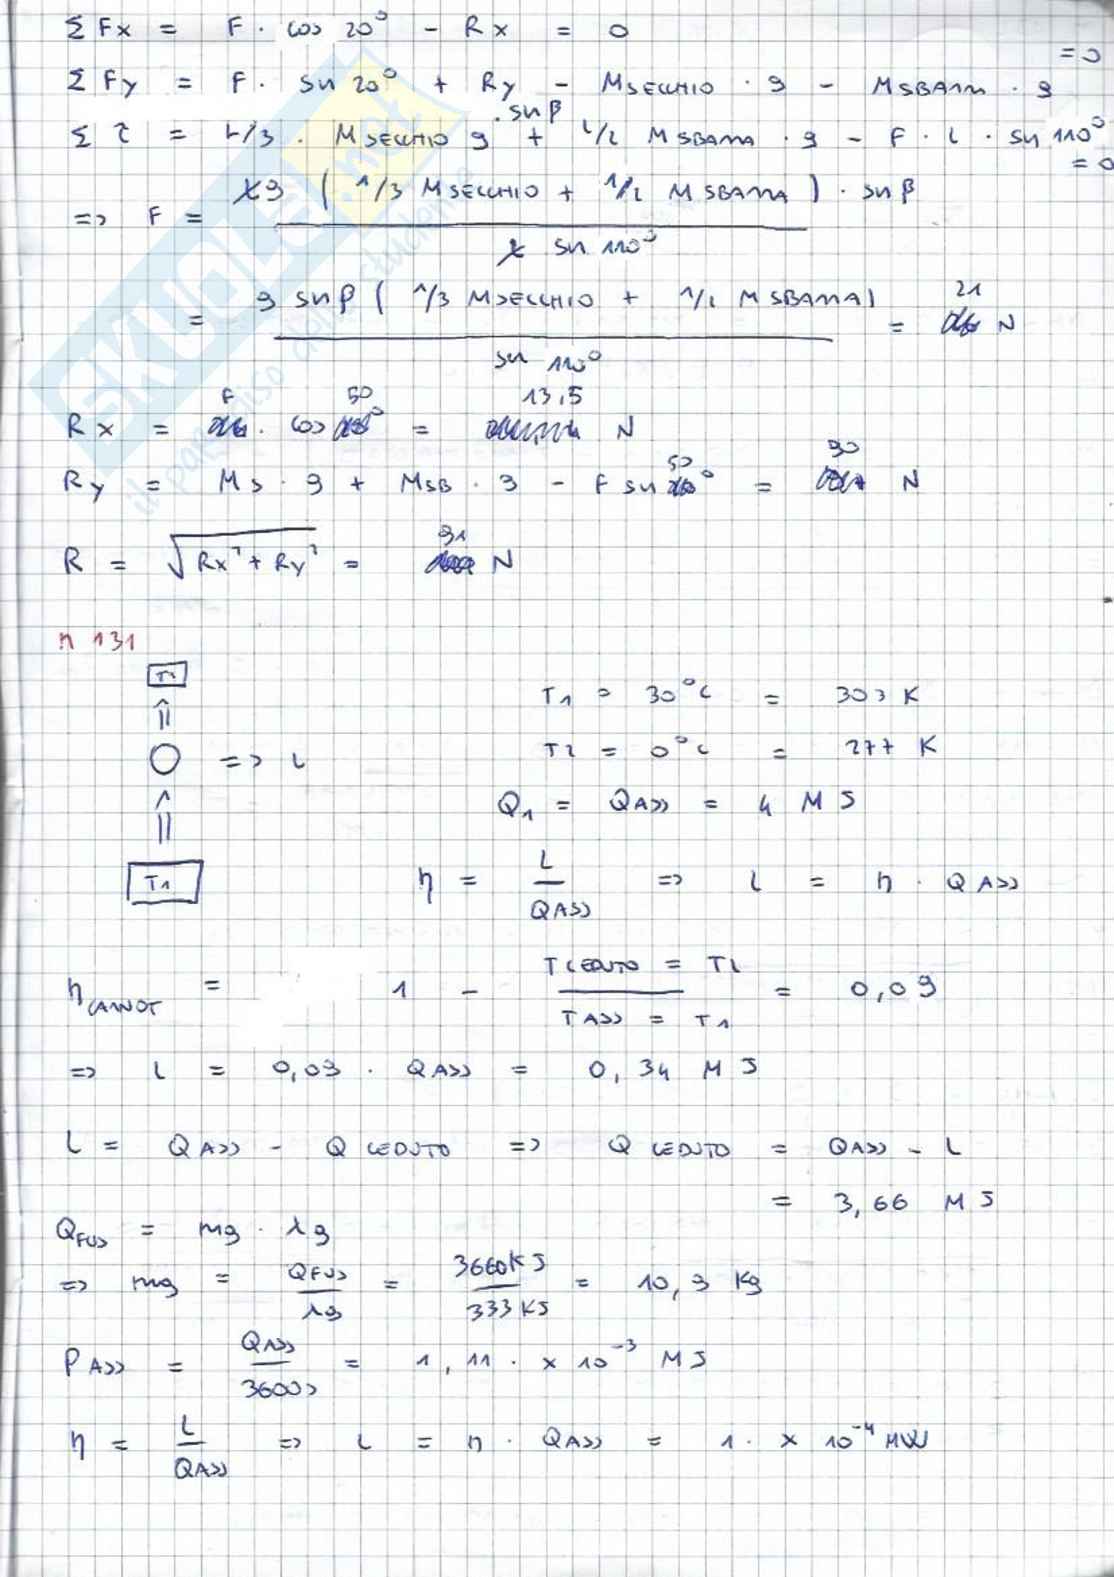 Σ Fx = F · cos 20° - Rx = 0
Σ Fy = F · sen 20° + Ry - Msecchio · g - Msbarra · g = 0
Σ τ = L/3 · Msecchio g · sen β + L/2 Msbarra · g - F · L · sen 110° = 0
=> F = Lg ( 1/3 Msecchio + 1/2 Msbarra ) · sen β
L sen 110°
= g sen β ( 1/3 Msecchio + 1/2 Msbarra ) = 21 N
sen 110°
Rx = F · cos 50° = 13,5 N
Ry = Ms · g + Msb · g - F sen 50° = 90 N
R = √Rx² + Ry² = 91 N
n 131
T2
=> L
T1
T1 = 30°C = 303 K
T2 = 0°C = 277 K
Q1 = QASS = 4 MJ
η = L / QASS => L = η · QASS
ηCARNOT = 1 - TCEDUTO = T2 / TASS = T1 = 0,09
=> L = 0,09 · QASS = 0,34 MJ
L = QASS - QCEDUTO => QCEDUTO = QASS - L
= 3,66 MJ
QFUS = mg · λg
=> mg = QFUS / λg = 3660KJ / 333KJ = 10,9 Kg
PASS = QASS / 3600s = 1,11 · x 10⁻³ MJ
η = L / QASS => L = η · QASS = 1 · x 10⁻⁴ MW
SKUOLA.net
il paradiso dello studente